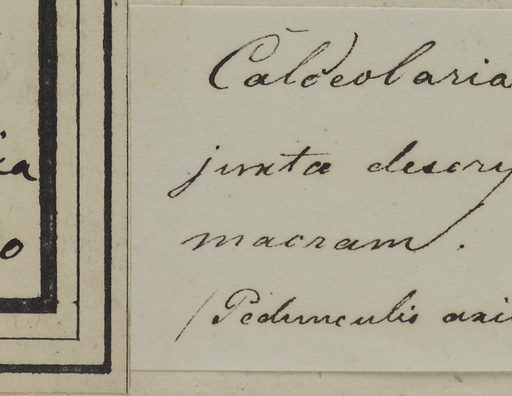 Calceolaria
juxta descry
macram.
(Pedunculis axi
ia
o